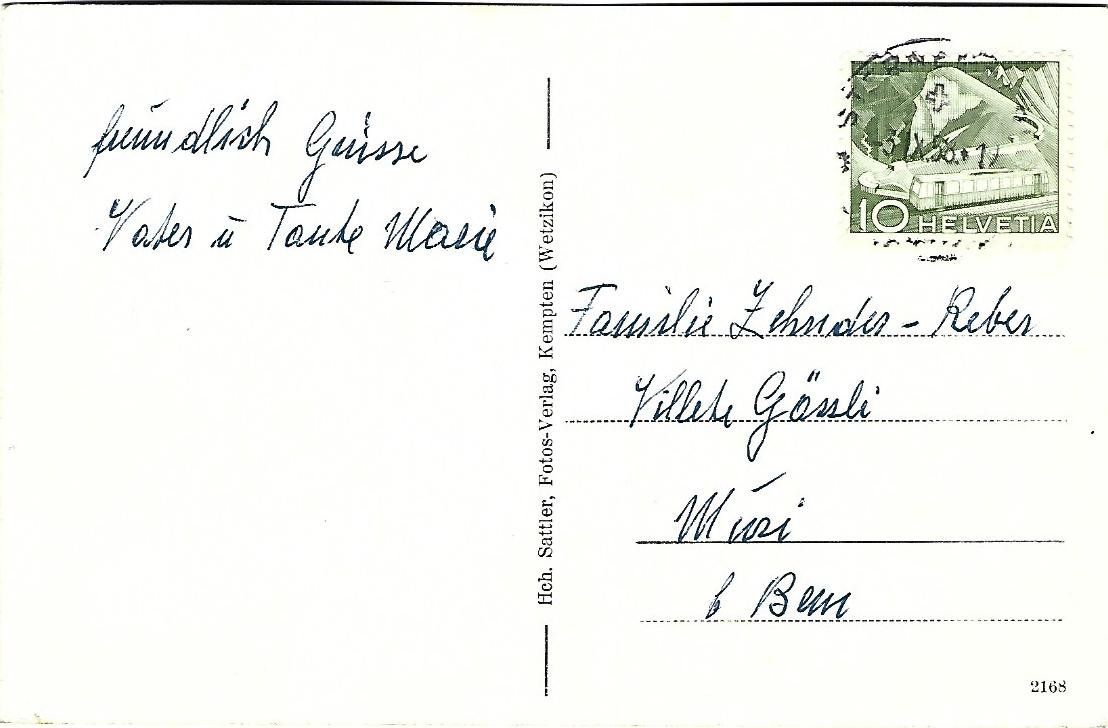 freundlich Grüsse
Vater u Tante Marie
Hch. Sattler, Fotos-Verlag, Kempten (Wetzikon)
10 HELVETIA
Familie Zehnder - Reber
Villete Gässli
Muri
b Bern
2168